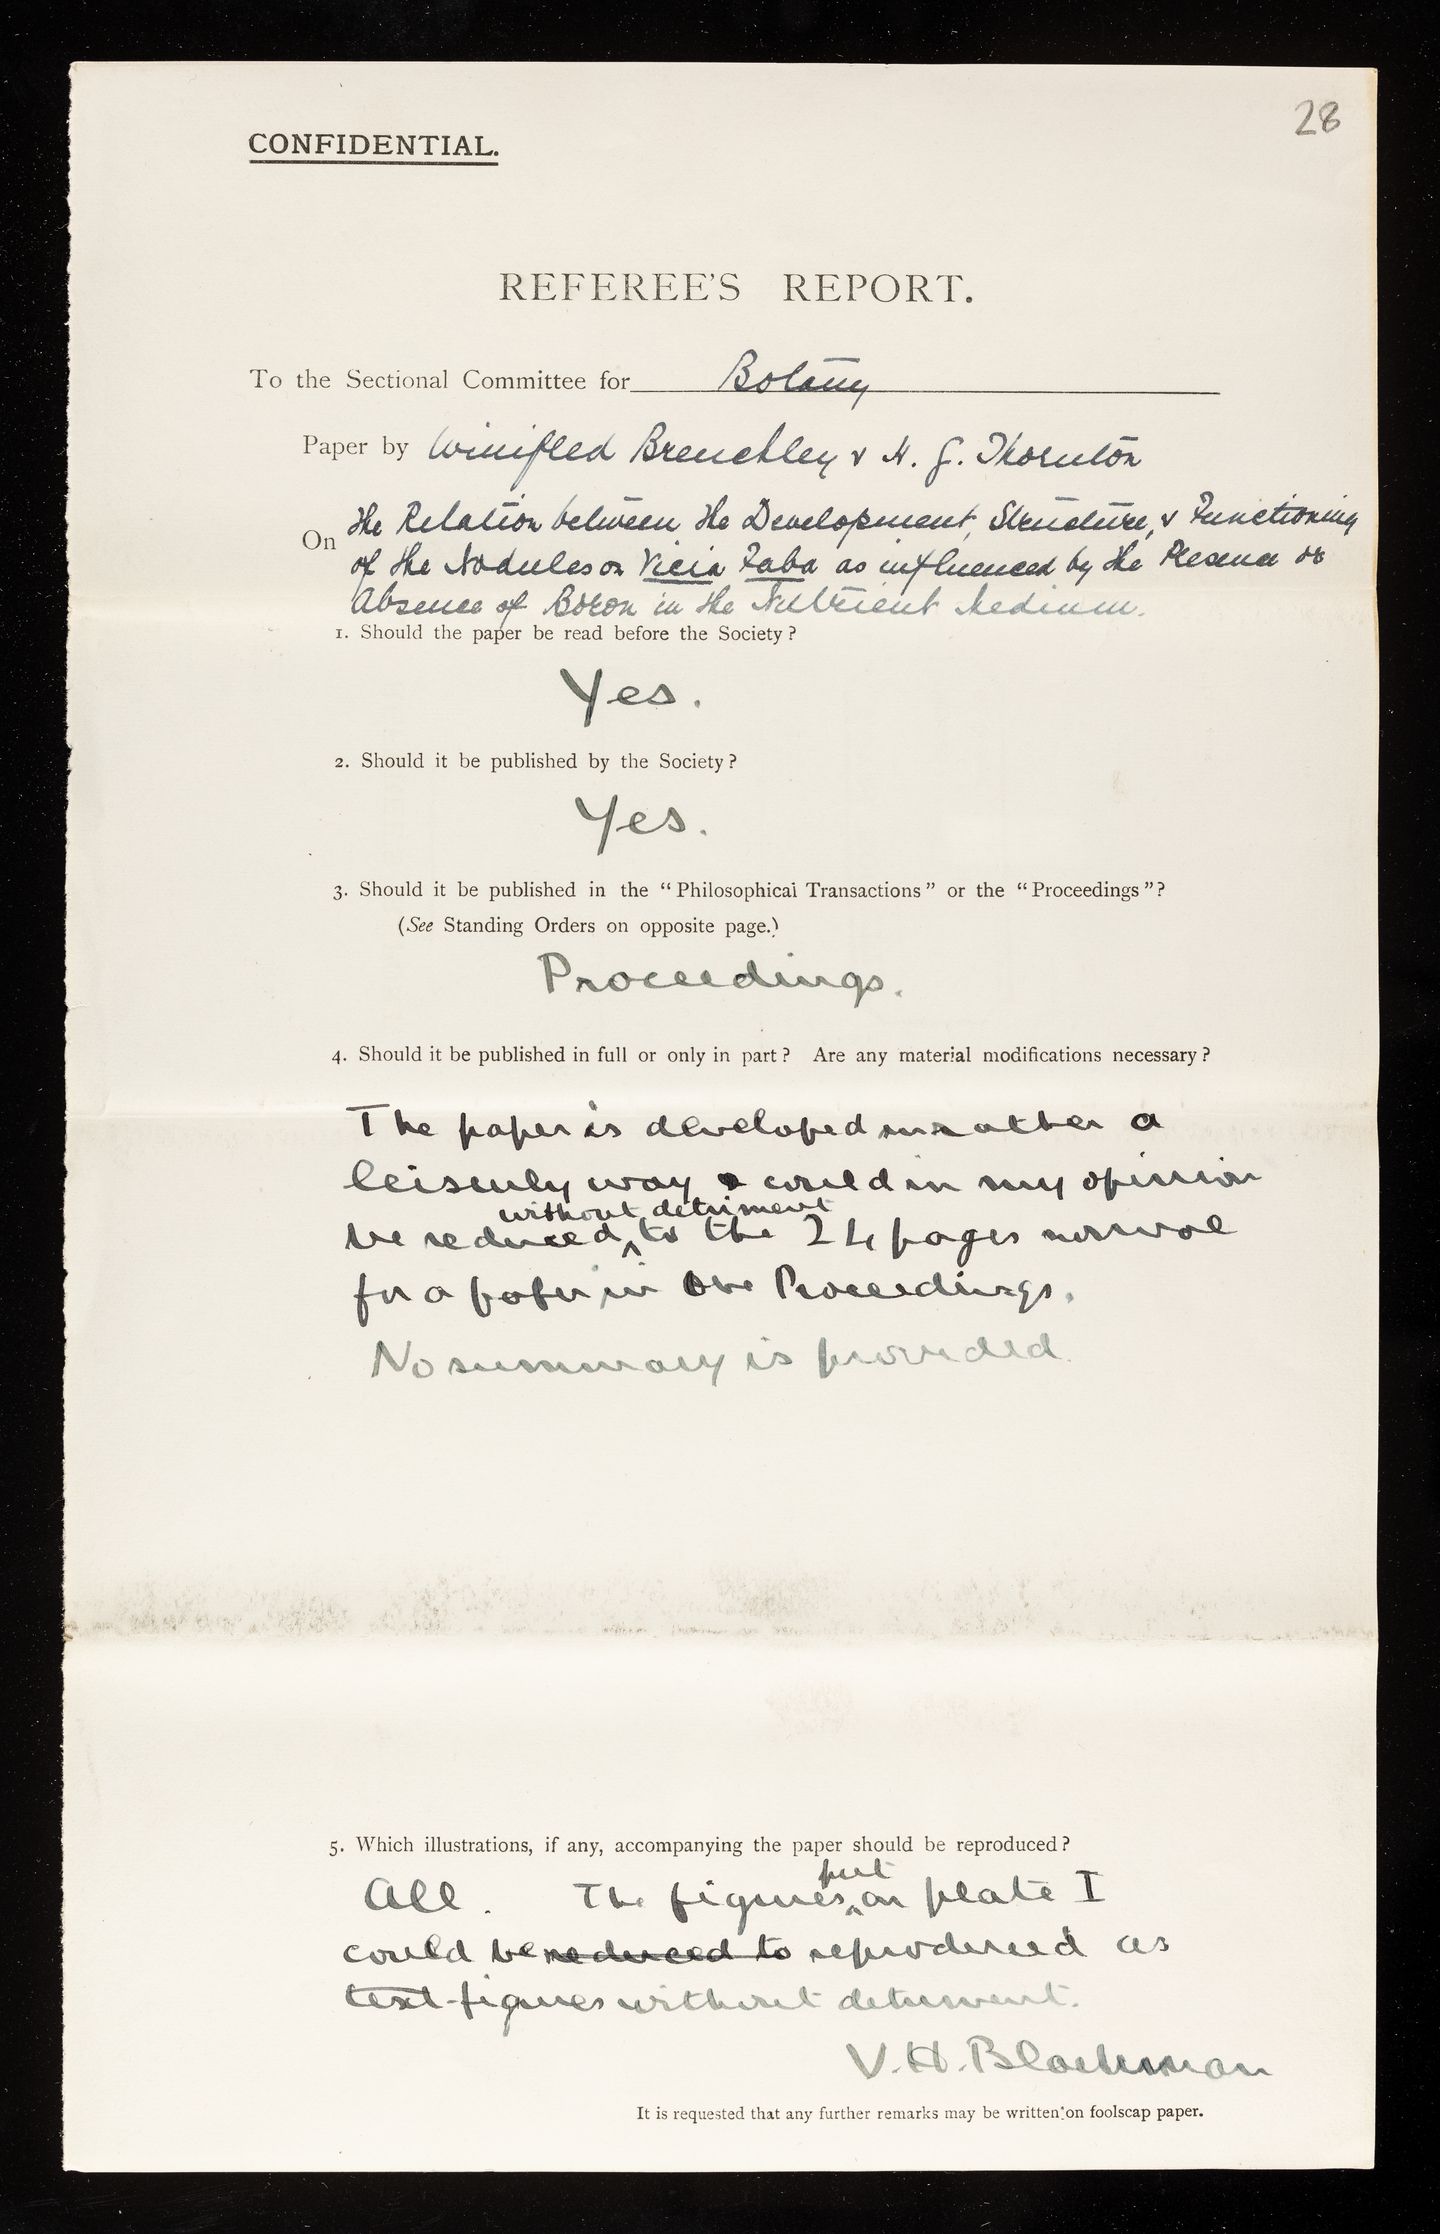 28
CONFIDENTIAL.
REFEREE'S REPORT.
To the Sectional Committee for Botany
Paper by Winifred Brenchley & H. G. Thornton
On the Relation between the Development, Structure, & Functioning
of the Nodules on Vicia Faba as influenced by the Presence or
Absence of Boron in the Nutrient Medium.
1. Should the paper be read before the Society?
Yes.
2. Should it be published by the Society?
Yes.
3. Should it be published in the "Philosophical Transactions" or the "Proceedings"?
(See Standing Orders on opposite page.)
Proceedings.
4. Should it be published in full or only in part? Are any material modifications necessary?
The paper is developed in rather a
leisurely way & could in my opinion
without detriment
be reduced ^ to the 24 pages normal
for a paper in the Proceedings.
No summary is provided.
5. Which illustrations, if any, accompanying the paper should be reproduced?
put
All. The figures ^ on plate I
could be reduced to reproduced as
text-figures without detriment.
V. H. Blackman
It is requested that any further remarks may be written on foolscap paper.